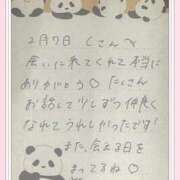 2月7日 Cさんへ
会いに来てくれて本当に
ありがとう♡ たくさん
お話して少しずつ仲良く
なれてうれしかったです!
また、会える日を
まってますね♡